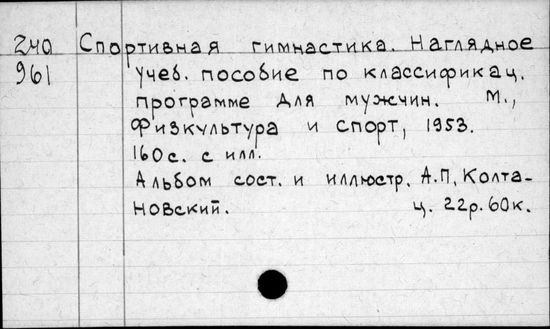 240 Спортивная гимнастика. Наглядное
961 учеб. пособие по классификац.
программе для мужчин. М.,
Физкультура и спорт, 1953.
160с. с илл.
Альбом сост. и иллюстр. А.П. Колта-
новский. ц. 22р.60к.